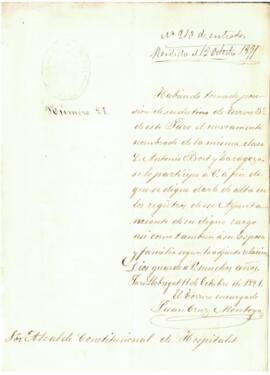 Nº 213 de entrada
Recibido el 12 Octubre 1891
Número 21
Habiendo tomado pose-
sion de su destino de torrero 3º
de este Faro el nuevamente
nombrado de la misma clase
D. Antonio Bort y Zaragoza
se lo participo a V. a fin de
que se digne darle de alta en
los registros de ese Ayunta-
miento de su digno cargo
asi como tambien a su esposa
y familia segun la adjunta relacion
Dios guarde a V. muchos años
Faro Llobregat 11 de Octubre de 1891.
El Torrero encargado
Juan Cruz Montoya
Sor. Alcalde Constitucional de Hospitalet